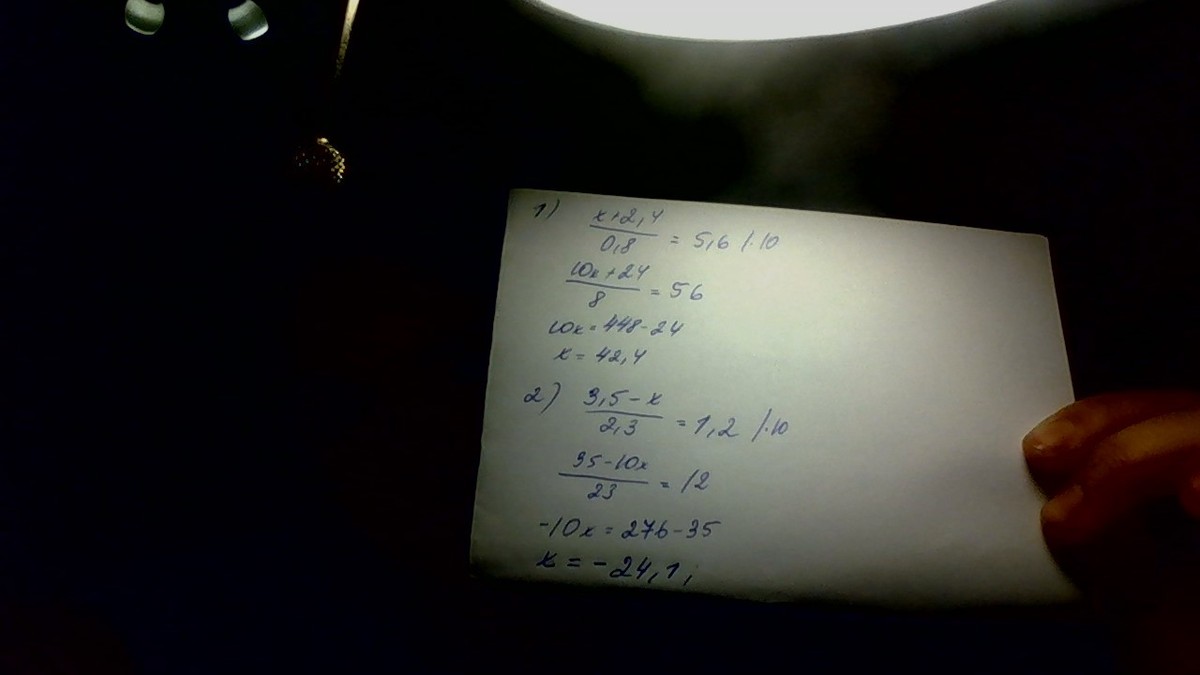 1) x+2,4 / 0,8 = 5,6 /·10
10x+24 / 8 = 56
10x=448-24
x=42,4
2) 3,5-x / 2,3 = 1,2 /·10
35-10x / 23 = 12
-10x=276-35
x=-24,1;